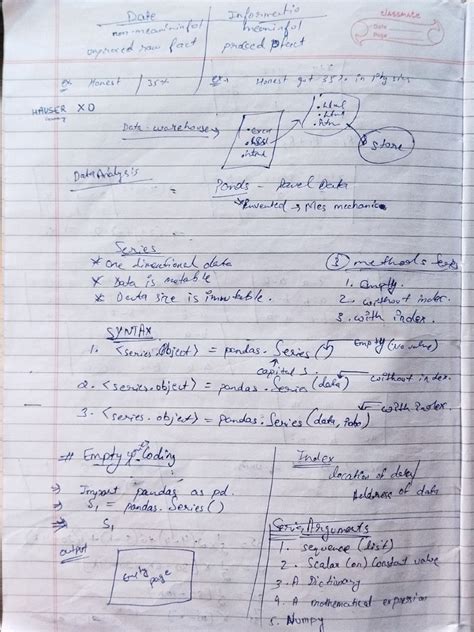 CLASSMATE
Date
Page
Data | Informatio
non-meaininfol | meaninfol
unproced raw fact | proced fact
ex Honest / 35% | ex: Honest got 35% in physics
HAUSER XD
Data-warehouse → .excel
.html
.html
.html
store
Data Analysis
= Panda - Panel Data
* Invented → Mes mechanic
Series
* One dimentional data
* Data is mutable
* Data size is immutable.
③ methods
1. Empty.
2. without index.
3. with index.
SYNTAX
1. <series.Object> = pandas.Series() Empty (no value)
capital S.
2. <series.object> = pandas.Seria (data) without index.
3. <series.object> = pandas.Series (data, ) with index.
# Empty Coding
→ Import pandas as pd.
→ S1 = pandas.Series()
→ S1
output
Emty page
Index
location of data/
Address of data
Series Arguments
1. sequence (list)
2. Scalar (or) Constant value
3. A Dictionary
4. A mathematical expression
5. Numpy